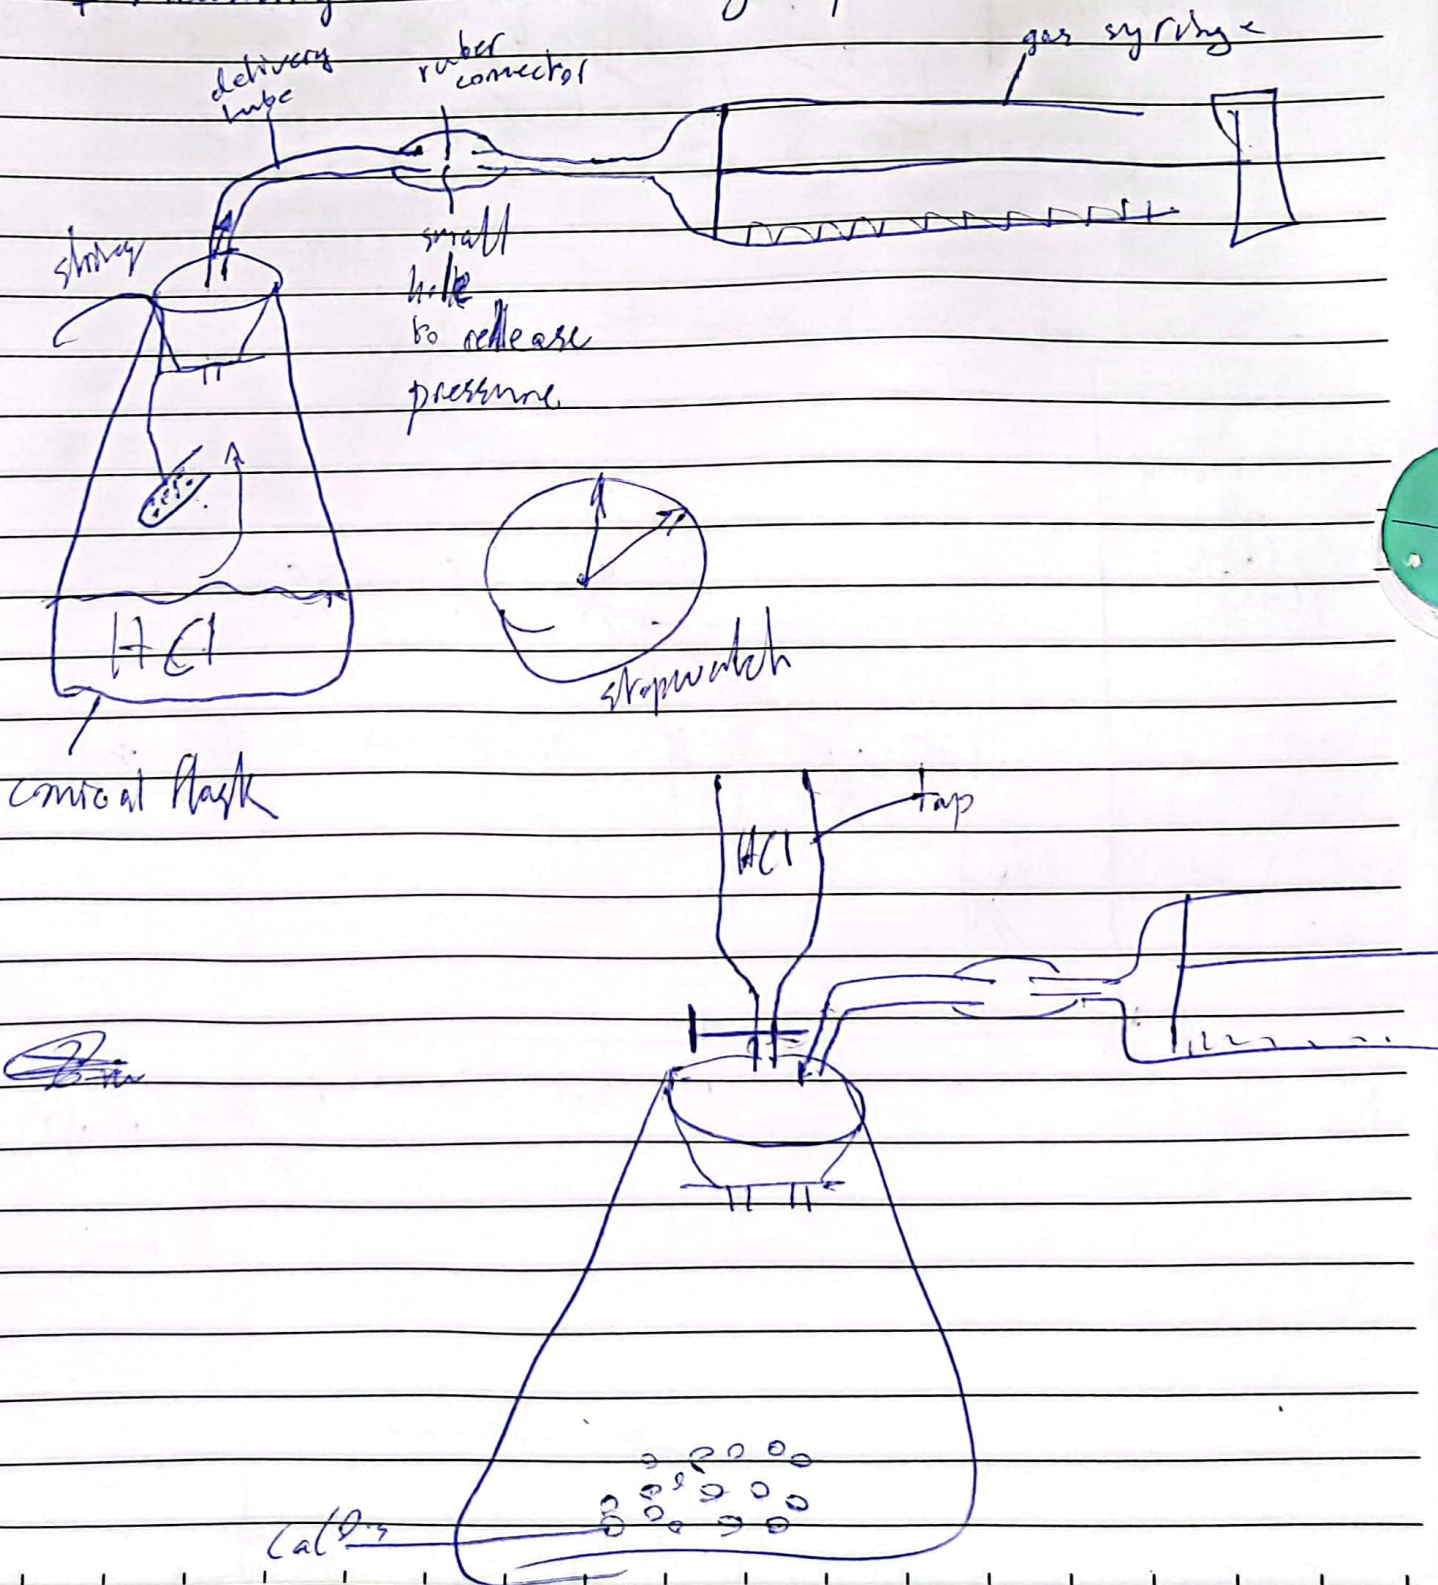 gas syringe
delivery
tube
ruber
connector
string
small
hole
to rellease
pressure
HCl
stopwatch
conical flask
tap
HCl
CaCO3